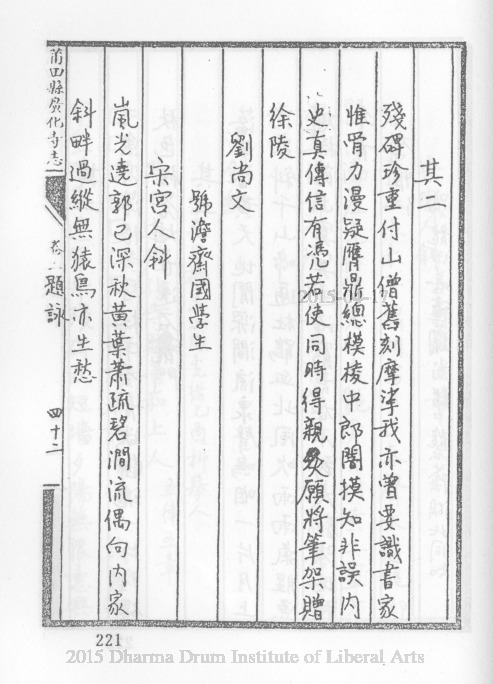 其二
殘碑珍重付山僧舊刻摩挲我亦曾要識書家
惟骨力漫疑贋鼎總模棱中郎闇摸知非誤內
史真傳信有憑若使同時得親炙願將筆架贈
徐陵
劉尚文
號澹齋國學生
宋宮人斜
嵐光遶郭已深秋黃葉蕭疏碧澗流偶向內家
斜畔過縱無猿鳥亦生愁
莆田縣廣化寺志
題詠
四十二
221
2015 Dharma Drum Institute of Liberal Arts